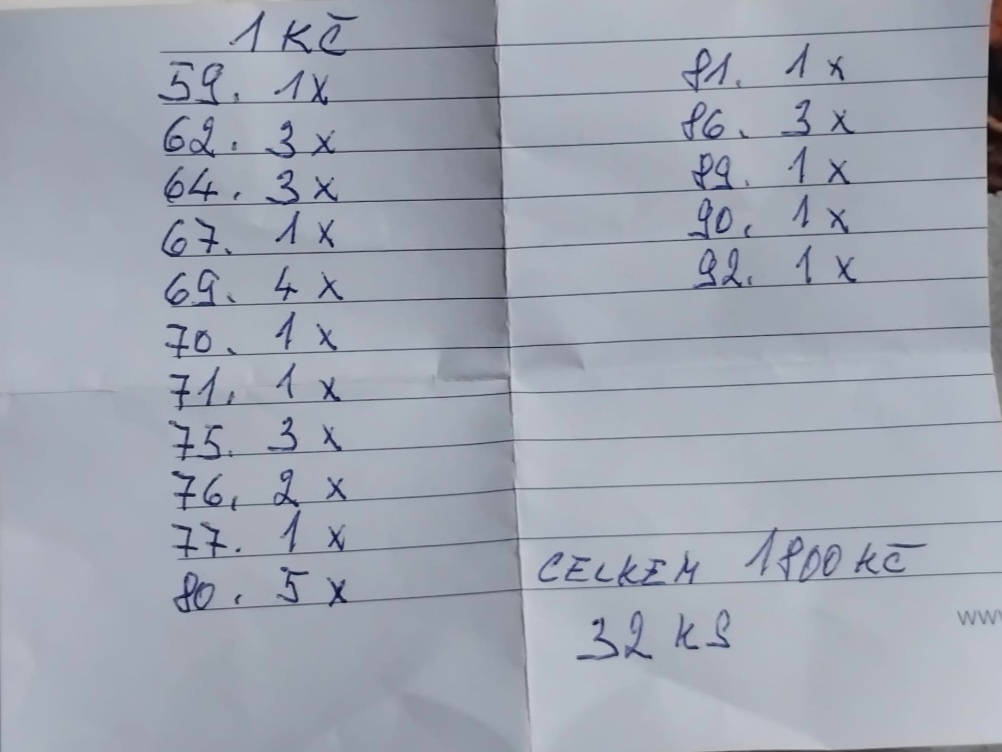 1 KČ
59. 1x
62. 3x
64. 3x
67. 1x
69. 4x
70. 1x
71. 1x
75. 3x
76. 2x
77. 1x
80. 5x
81. 1x
86. 3x
89. 1x
90. 1x
92. 1x
CELKEM 1800 KČ
32 KS
www